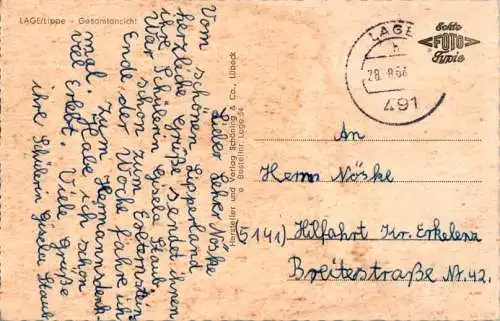 LAGE/Lippe - Gesamtansicht
Lieber Lehrer Nöske
Vom schönen Lipperland
herzliche Grüße sendet ihnen
ihre Schülerin Gisela Staub
War schon zum Externsten
Ende der Woche fahre ich
mal. Zum Hermannsdenk-
Habe ich schon
viel erlebt. Viele Grüße
ihre Schülerin Gisela Staub
Hersteller und Verlag Schöning & Co., Lübeck
Bestellnr. Lage.54
LAGE
h
28. 8.66
491
Echte
FOTO
Typie
An
Herrn Nöske
(5141) Hilfahrt Kr. Erkelenz
Breitestraße Nr. 42.